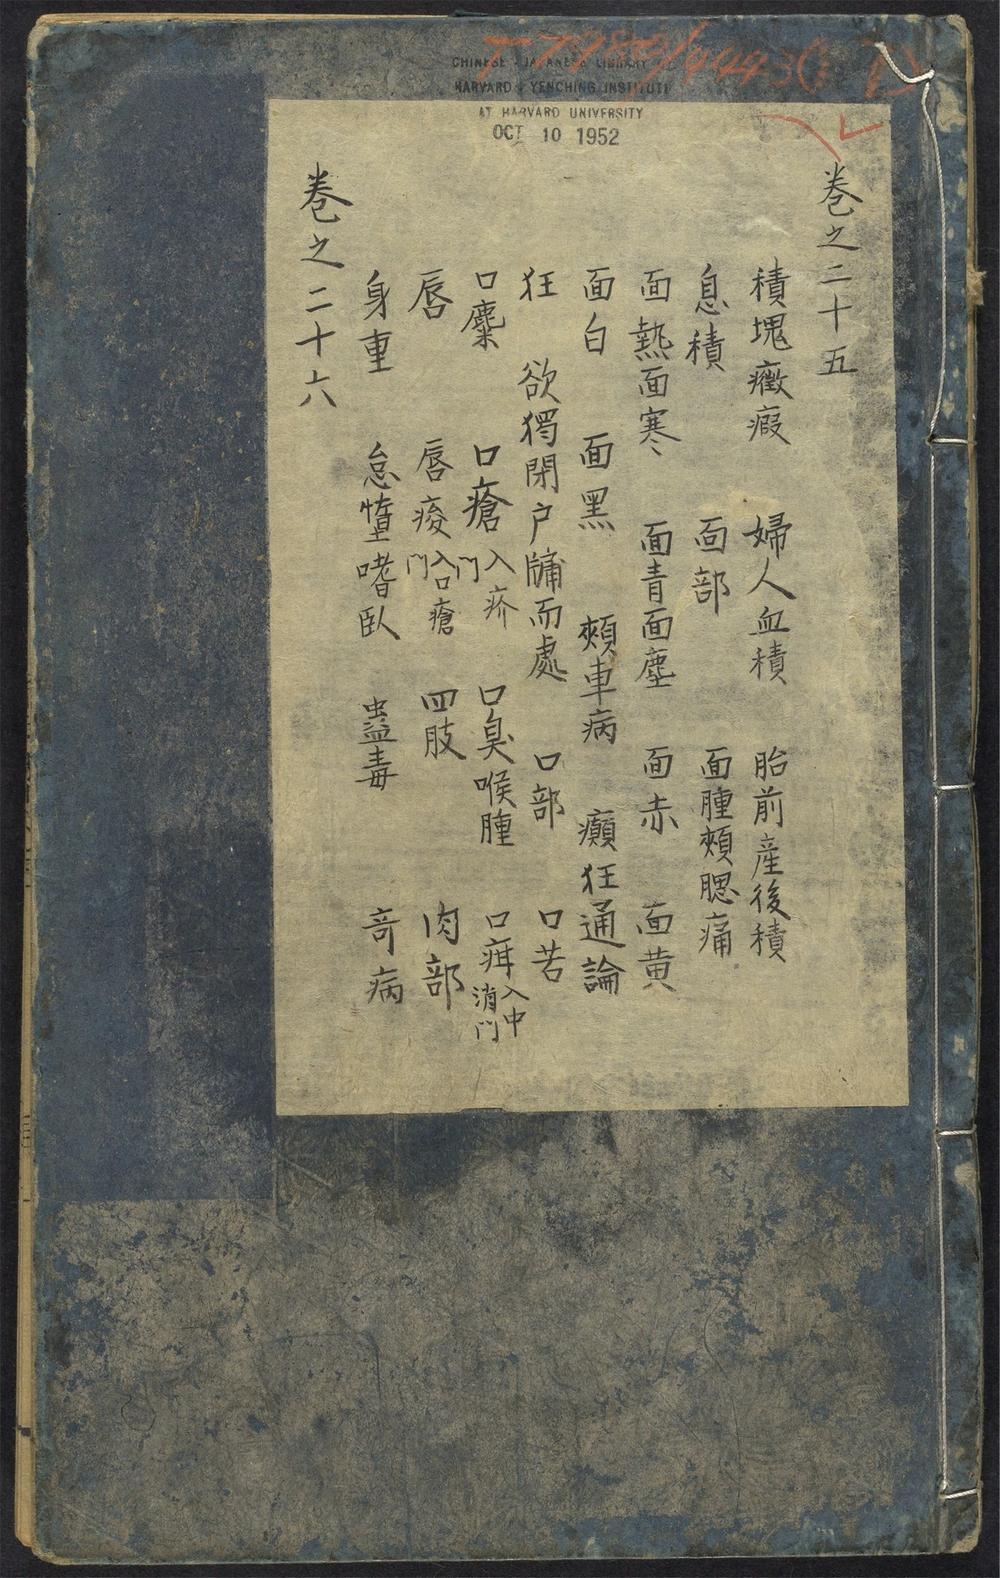 T 7980/4443
CHINESE - JAPANESE LIBRARY
HARVARD - YENCHING INSTITUTE
AT HARVARD UNIVERSITY
OCT 10 1952
卷之二十五
積塊癥瘕 婦人血積 胎前産後積
息積 面部 面腫頰腮痛
面熱面寒 面青面塵 面赤 面黄
面白 面黑 頰車病 癲狂通論
狂 欲獨閉户牖而處 口部 口苦
口糜 口瘡入疥門 口臭喉腫 口疳入中消門
唇 唇痠入口瘡門 四肢 肉部
身重 怠惰嗜臥 蠱毒 竒病
卷之二十六